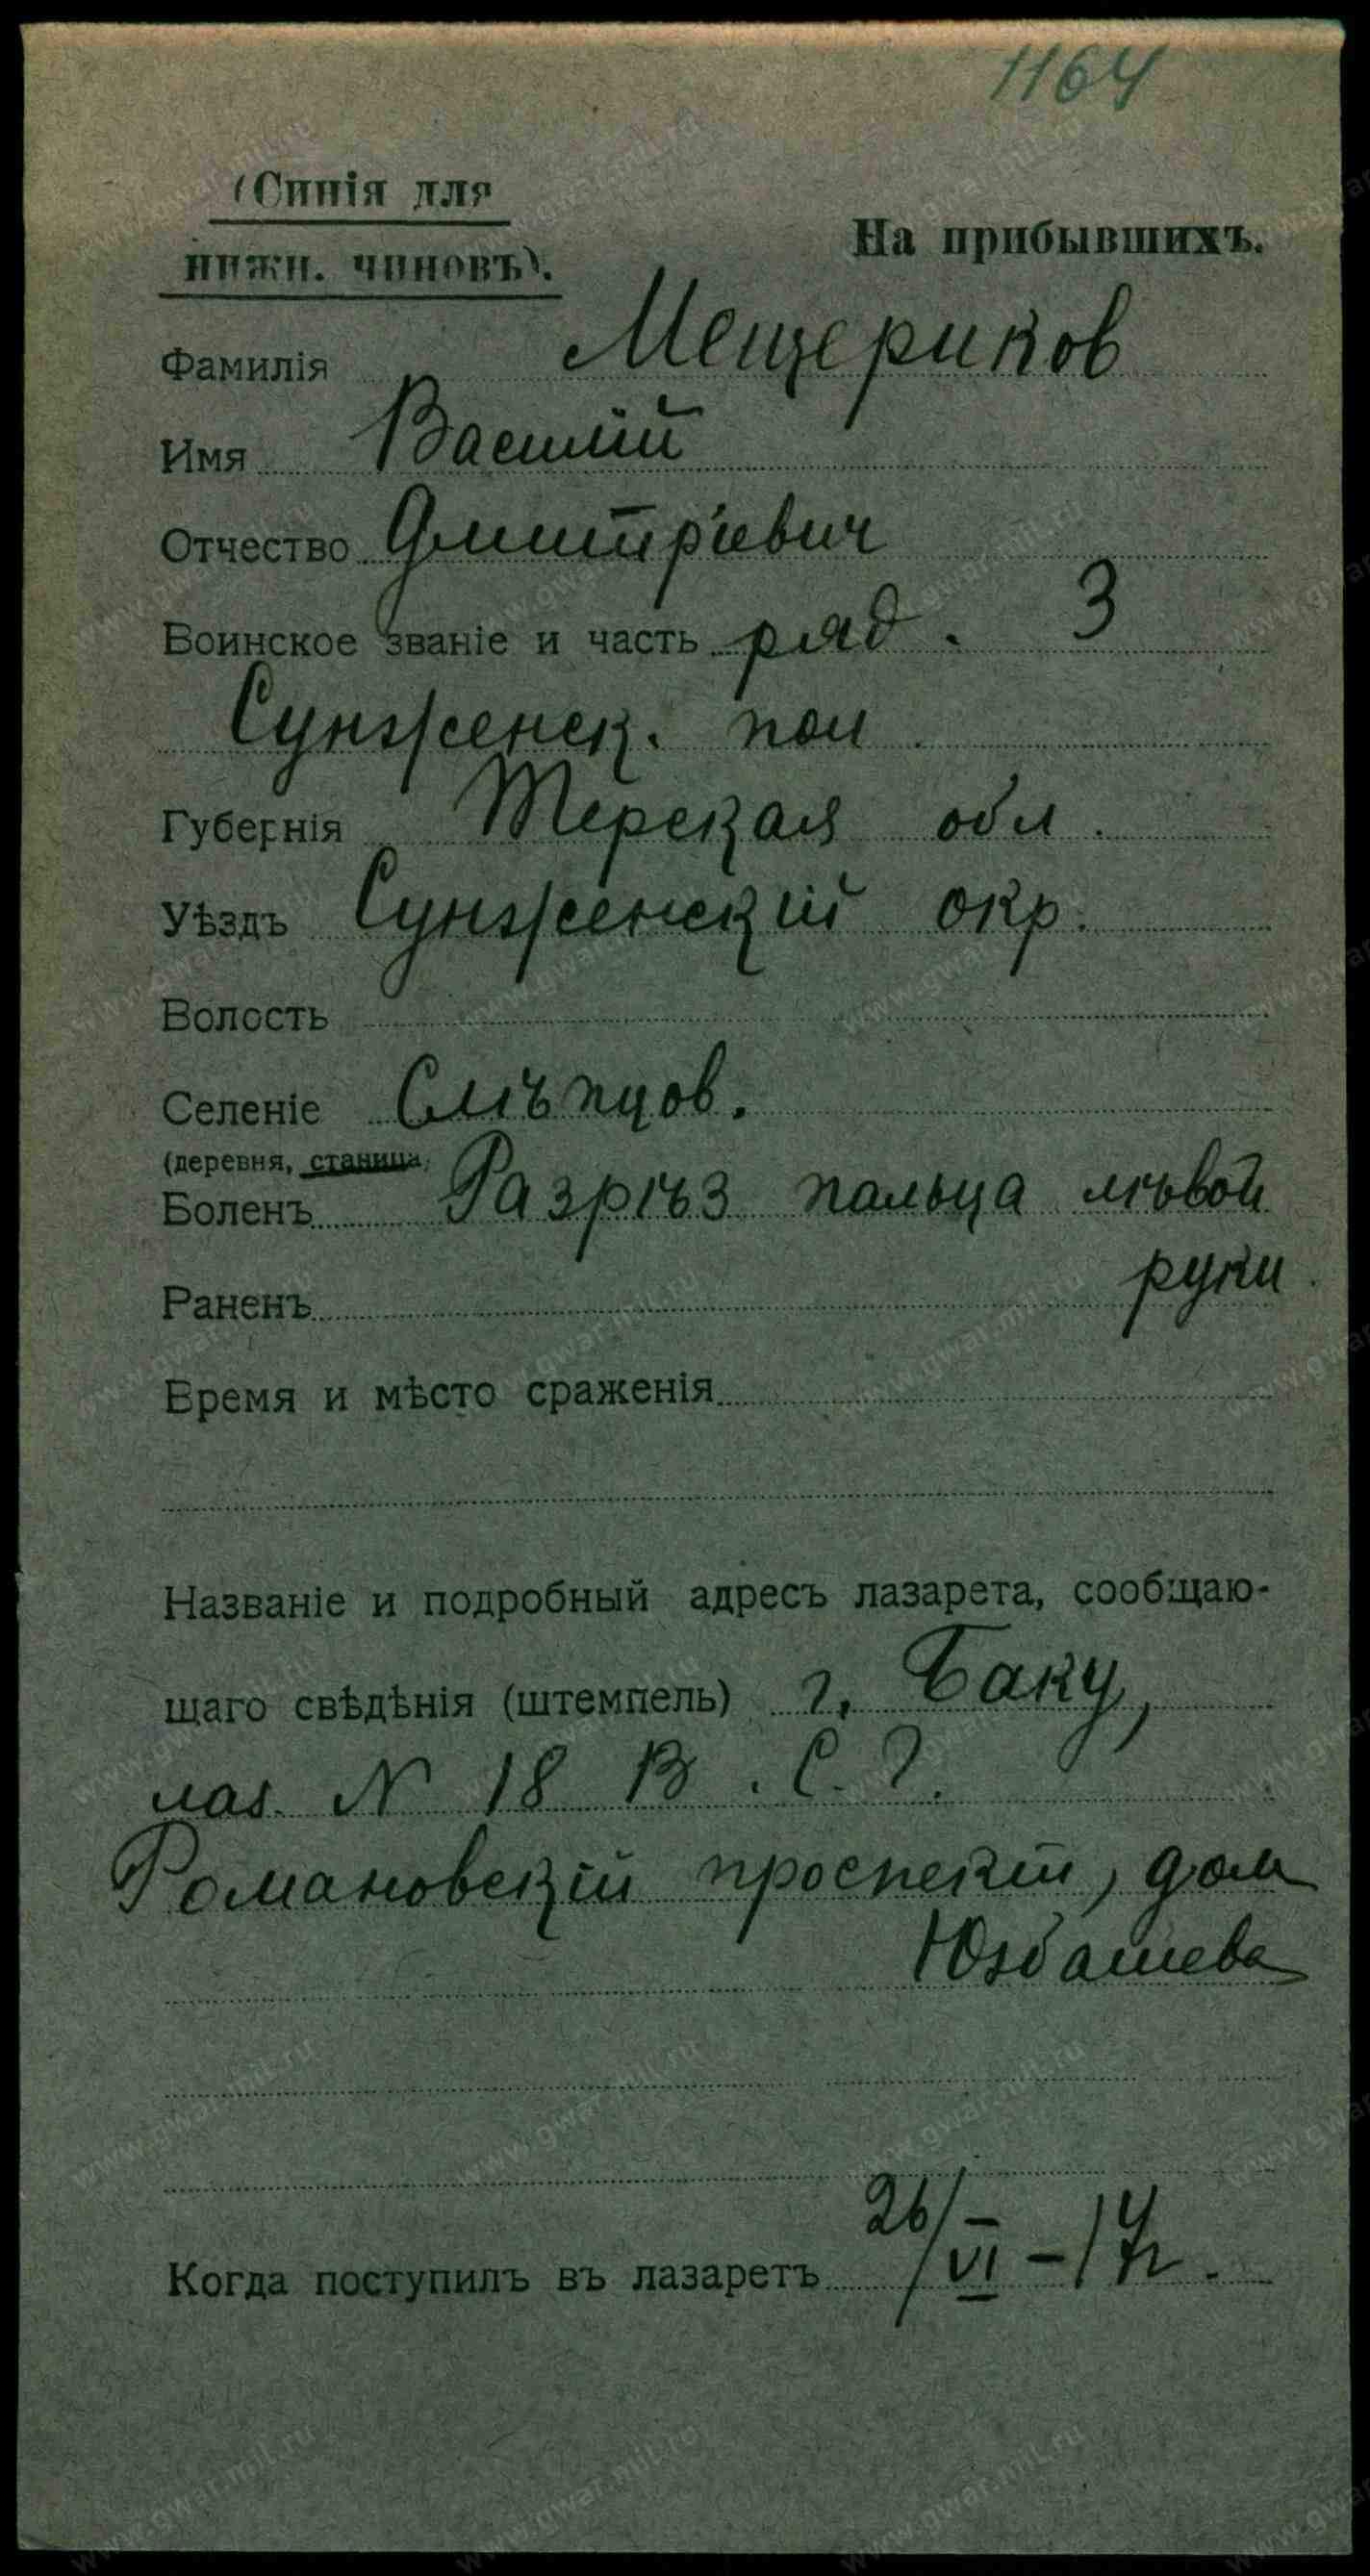 1164
(Синія для
нижн. чиновъ).
На прибывшихъ.
Фамилія Мещериков
Имя Василій
Отчество Дмитріевич
Воинское званіе и часть ряд. 3
Сунженск. пол
Губернія Терская обл.
Уѣздъ Сунженскій окр.
Волость
Селеніе Слѣпцов.
(деревня, станица,
Боленъ Разрѣз пальца лѣвой
руки.
Раненъ
Время и мѣсто сраженія
Названіе и подробный адресъ лазарета, сообщаю-
щаго свѣдѣнія (штемпель) г. Баку,
лаз. N 18 В. С. Г.
Романовскій проспект, дом
Юзбашева
Когда поступилъ въ лазаретъ 26/VI – 17 г.